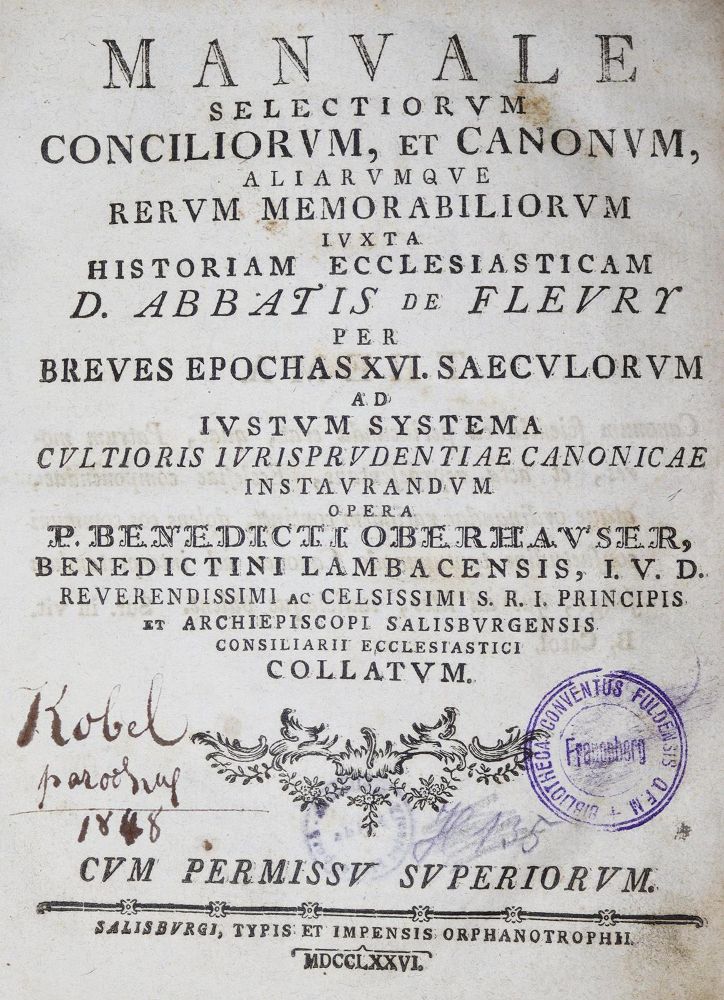 MANVALE
SELECTIORVM
CONCILIORVM, ET CANONVM,
ALIARVMQVE
RERVM MEMORABILIORVM
IVXTA
HISTORIAM ECCLESIASTICAM
D. ABBATIS DE FLEVRY
PER
BREVES EPOCHAS XVI. SAECVLORVM
AD
IVSTVM SYSTEMA
CVLTIORIS IVRISPRVDENTIAE CANONICAE
INSTAVRANDVM
OPERA
P. BENEDICTI OBERHAVSER,
BENEDICTINI LAMBACENSIS, I. V. D.
REVERENDISSIMI AC CELSISSIMI S. R. I. PRINCIPIS
ET ARCHIEPISCOPI SALISBVRGENSIS
CONSILIARII ECCLESIASTICI
COLLATVM.
Kobel
parochus
1848
BIBLIOTHECA CONVENTUS FULDENSIS O.F.M +
Frauenberg
135
CVM PERMISSV SVPERIORVM.
SALISBVRGI, TYPIS ET IMPENSIS ORPHANOTROPHII.
MDCCLXXVI.